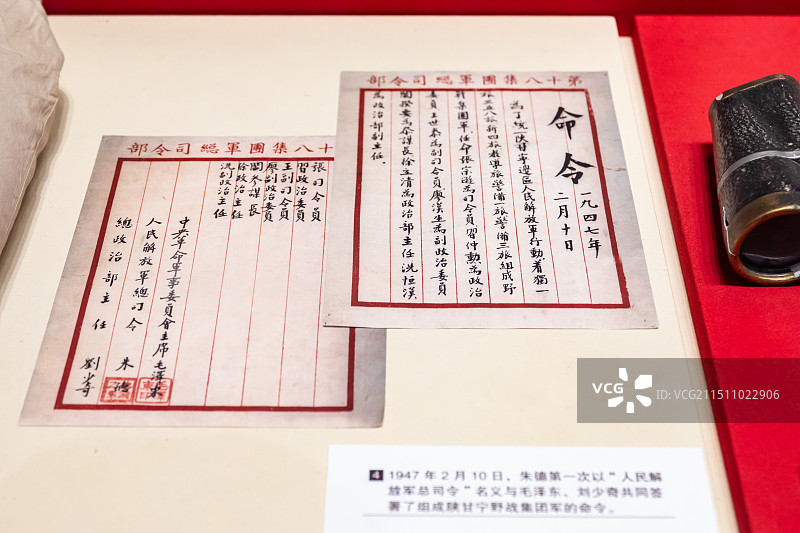 第十八集團軍總司令部
命令
一九四七年
二月十日
為了統一陝甘寧邊區人民解放軍行動着獨一
旅三五八旅新四旅教導旅警備一旅警備三旅組成野
戰集團軍，任命張宗遜為司令員習仲勳為政治
委員王世泰為副司令員廖漢生為副政治委員
閻揆要為參謀長徐立清為政治部主任冼恒漢
為政治部副主任。
十八集團軍總司令部
張司令員
習政治委員
王副司令員
廖副政治委員
閻參謀長
徐政治主任
冼副政治主任
中央革命軍事委員會主席毛澤東
人民解放軍總司令 朱德
總政治部主任 劉少奇
4 1947 年 2 月 10 日，朱德第一次以“人民解
放军总司令”名义与毛泽东、刘少奇共同签
署了组成陕甘宁野战集团军的命令。
VCG
视觉中国
VCG211511022906